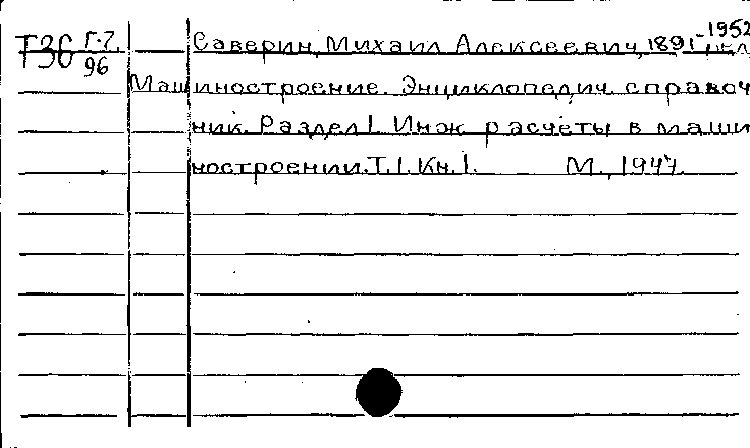 Т36 Г-7
96
Саверин, Михаил Алексеевич, 1891-1952 ред.
Машиностроение. Энциклопедич. справоч
ник. Раздел I. Инж. расчеты в маши
ностроении. Т. 1. Кн. 1. М., 1947.